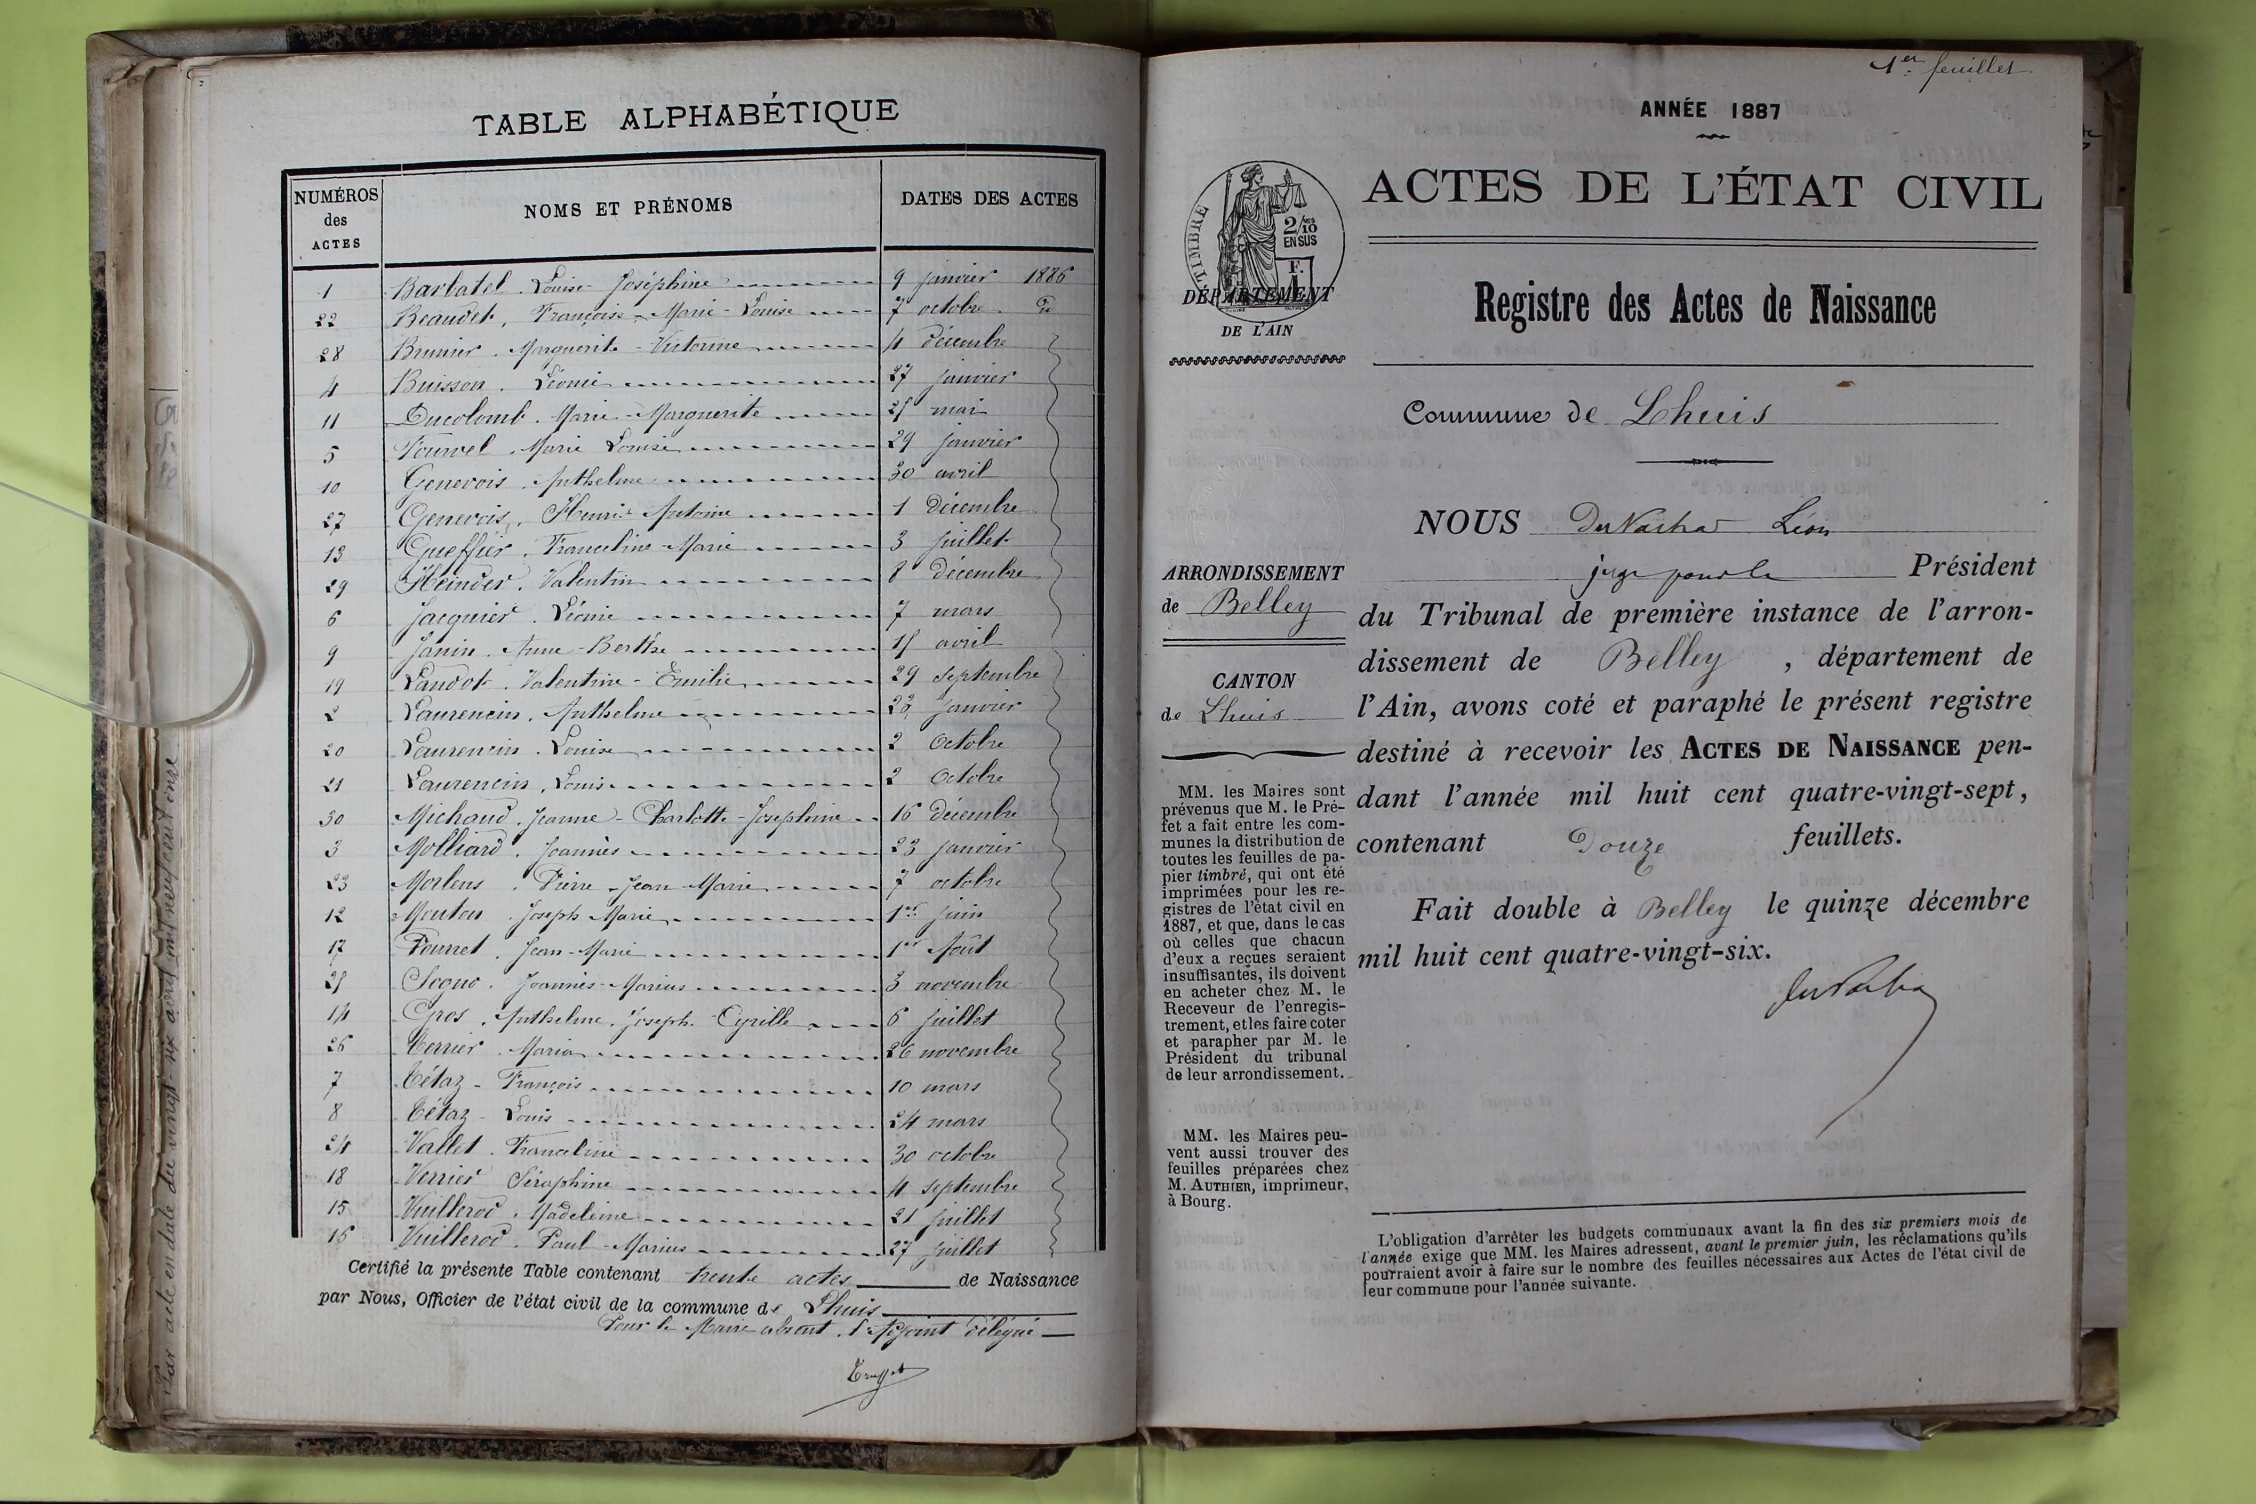 TABLE ALPHABÉTIQUE
NUMÉROS des ACTES NOMS ET PRÉNOMS DATES DES ACTES
1 Barbatel. Louise Joséphine 9 janvier 1886
22 Beaudet, François-Marie-Louise 7 octobre d°
28 Brunier. Marguerite-Victorine 4 décembre
4 Buisson. Léonie 27 janvier
11 Ducolomb. Marie-Marguerite 25 mai
5 Fourvel. Marie Louise 29 janvier
10 Genevois. Anthelme 30 avril
27 Genevois. Henri-Antoine 1 décembre
13 Gueffier. Franceline-Marie 3 juillet
29 Heinder. Valentin 8 décembre
6 Jacquier. Léonie 7 mars
9 Janin. Anne-Berthe 15 avril
19 Landot. Valentine-Emilie 29 septembre
2 Laurencin. Anthelme 23 janvier
20 Laurencin. Louise 2 Octobre
21 Laurencin, Louis 2 Octobre
30 Michaud. Jeanne-Charlotte-Joséphine 16 décembre
3 Molliard. Joannès 23 janvier
23 Morlens. Pierre-Jean-Marie 7 octobre
12 Mouton. Joseph Marie 1er juin
17 Pourret. Jean-Marie 1er Août
25 Sogno. Joannès-Marius 3 novembre
14 Gros. Anthelme. Joseph-Cyrille 6 juillet
26 Terrier. Maria 26 novembre
7 Tétaz-François 10 mars
8 Tétaz-Louis 24 mars
24 Vallet. Franceline 30 octobre
18 Verrier Séraphine 4 septembre
15 Vuillerod. Madeleine 21 juillet
16 Vuillerod. Paul-Marius 27 juillet
Certifié la présente Table contenant trente actes de Naissance
par Nous, Officier de l'état civil de la commune de Lhuis
Pour le Maire absent, l'adjoint délégué
1er feuillet
ANNÉE 1887
ACTES DE L'ÉTAT CIVIL
TIMBRE
2/10 EN SUS
F. 1
DÉPARTEMENT
DE L'AIN
Registre des Actes de Naissance
Commune de Lhuis
NOUS Léon
juge pour le Président
ARRONDISSEMENT
de Belley
CANTON
de Lhuis
du Tribunal de première instance de l'arron-
dissement de Belley, département de
l'Ain, avons coté et paraphé le présent registre
destiné à recevoir les ACTES DE NAISSANCE pen-
dant l'année mil huit cent quatre-vingt-sept,
contenant Douze feuillets.
Fait double à Belley le quinze décembre
mil huit cent quatre-vingt-six.
MM. les Maires sont
prévenus que M. le Pré-
fet a fait entre les com-
munes la distribution de
toutes les feuilles de pa-
pier timbré, qui ont été
imprimées pour les re-
gistres de l'état civil en
1887, et que, dans le cas
où celles que chacun
d'eux a reçues seraient
insuffisantes, ils doivent
en acheter chez M. le
Receveur de l'enregis-
trement, et les faire coter
et parapher par M. le
Président du tribunal
de leur arrondissement.
MM. les Maires peu-
vent aussi trouver des
feuilles préparées chez
M. AUTHIER, imprimeur,
à Bourg.
L'obligation d'arrêter les budgets communaux avant la fin des six premiers mois de
l'année exige que MM. les Maires adressent, avant le premier juin, les réclamations qu'ils
pourraient avoir à faire sur le nombre des feuilles nécessaires aux Actes de l'état civil de
leur commune pour l'année suivante.